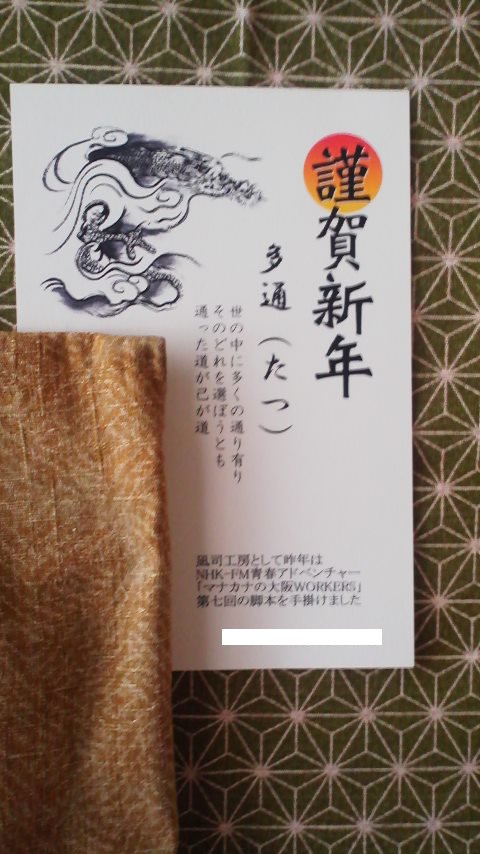 謹賀新年
多通（たつ）
世の中に多くの通り有り
そのどれを選ぼうとも
通った道が己が道
凪司工房として昨年は
NHK-FM青春アドベンチャー
「マナカナの大阪WORKERS」
第七回の脚本を手掛けました